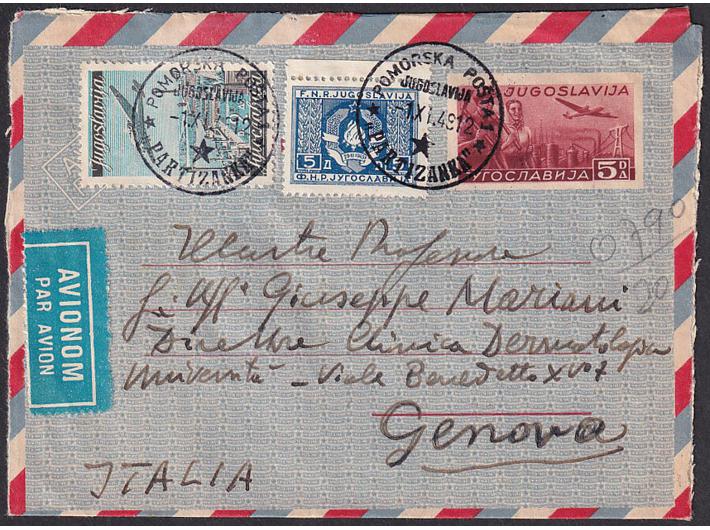 POMORSKA POŠTA
JUGOSLAVIJA
-1.XI.
12
"PARTIZANKA"
Jugoslavija
F.N.R. JUGOSLAVIJA
5 Д
Ф.Н.Р. ЈУГОСЛАВИЈА
POMORSKA POŠTA 1
JUGOSLAVIJA
-1.XI.49 12
"PARTIZANKA"
JUGOSLAVIJA
5 D Д
ЈУГОСЛАВИЈА
AVIONOM
PAR AVION
Illustre Professore
G. Uff. Giuseppe Mariani
Direttore Clinica Dermatologica
Università - Viale Benedetto XV
Genova
ITALIA
790
20